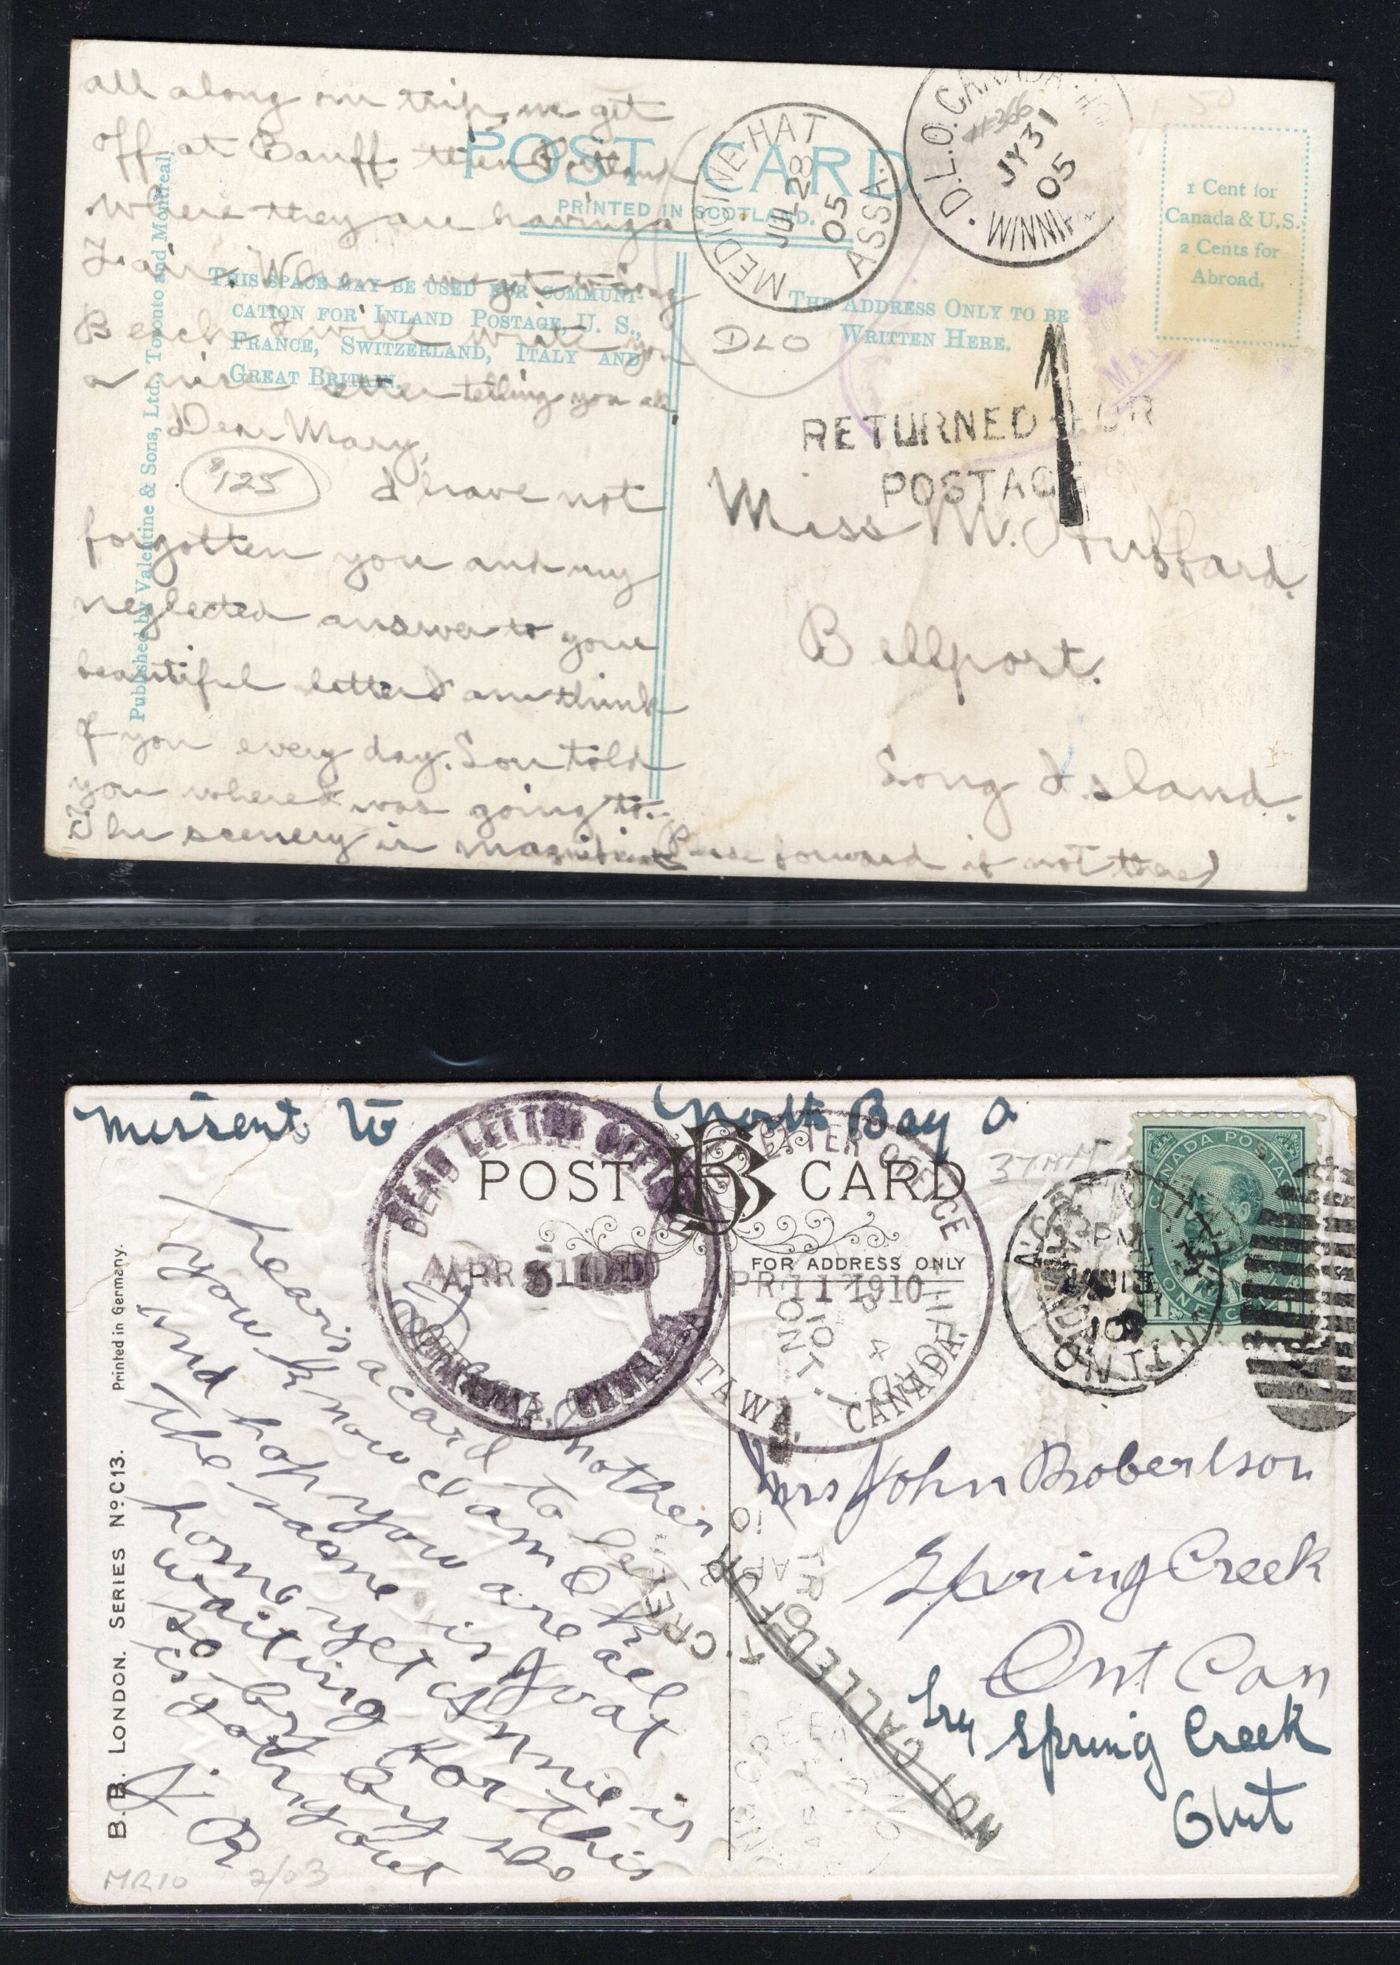 all along our trip, we get
off at Banff then Portland
where they are having a
Fair. When we get to Long
Beach I will write you
a nice letter telling you all.
Dear Mary,
$125
I have not
forgotten you and my
neglected answer to your
beautiful letter I am think
of you every day. Lou told
you where I was going to.
The scenery is magnificent (Please forward if not there)
POST CARD.
PRINTED IN SCOTLAND.
THIS SPACE MAY BE USED FOR COMMUNI-
CATION FOR INLAND POSTAGE, U. S.,
FRANCE, SWITZERLAND, ITALY AND
GREAT BRITAIN.
Published by Valentine & Sons, Ltd., Toronto and Montreal
THE ADDRESS ONLY TO BE
WRITTEN HERE.
MEDICINE-HAT
JUL 28
05
ASSA.
D.L.O. CANADA
JY 31
05
WINNI
DLO
1 Cent for
Canada & U.S.
2 Cents for
Abroad.
RETURNED FOR
POSTAGE
1
Miss M. Huffard.
Bellport.
Long Island.
missent to North Bay o
POST CARD
BB
FOR ADDRESS ONLY
DEAD LETTER OFFICE
APR
CANADA
OTTAWA, CANADA.
PR 11 1910
CANADA POSTAGE
ONE CENT
Dear Mother
hears a card to let
you know I am O K
and hop you are all
the same is Joat
home yet Annie is
waiting for this
so by by
J. R
Mrs John Robertson
Spring Creek
Ont Can
try Spring Creek
Ont
NOT CALLED FOR
B. B. LONDON. SERIES No C13.
Printed in Germany.
MR10
2/03